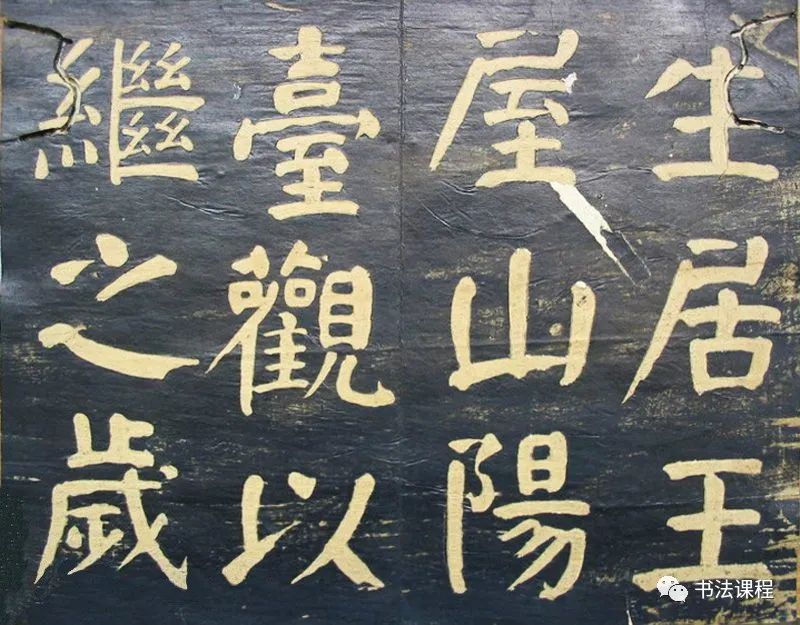 生居王
屋山陽
臺觀以
繼之歲
书法课程